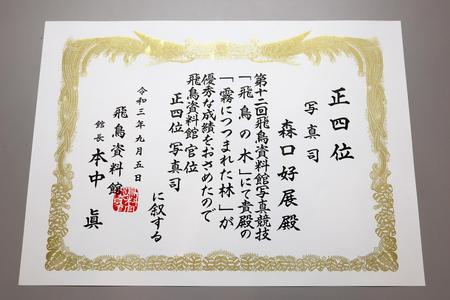 正四位
写真司
森口好展殿
第十二回飛鳥資料館写真競技
「飛鳥の木」にて貴殿の
「霧につつまれた林」が
優秀な成績をおさめたので
飛鳥資料館官位
正四位 写真司
に叙する
令和三年九月五日
飛鳥資料館
館長 本中 眞